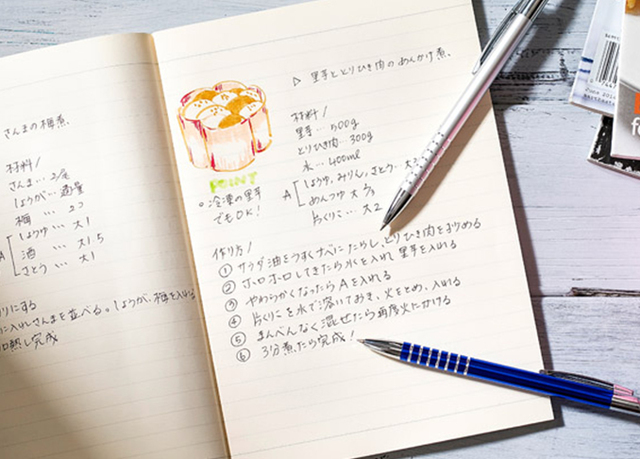 さんまの梅煮
材料/
さんま… 2尾
しょうが… 適量
梅 … 2コ
A しょうゆ … 大1
酒 … 大1.5
さとう … 大1
りにする
に入れさんまを並べる。しょうが、梅を入れる
し完成
▷ 里芋ととりひき肉のあんかけ煮。
材料/
里芋… 500g
とりひき肉… 300g
水… 400ml
A しょうゆ、みりん、さとう… 大
めんつゆ 大
片くりこ… 大2
POINT
○冷凍の里芋
でもOK!
作り方/
① サラダ油をうすくナベにたらし、とりひき肉をいためる
② ホロホロしてきたら水を入れ 里芋を入れる
③ やわらかくなったらAを入れる
④ 片くりこを水で溶いておき、火をとめ、入れる
⑤ まんべんなく混ぜたら再度火にかける
⑥ 3分煮たら完成!